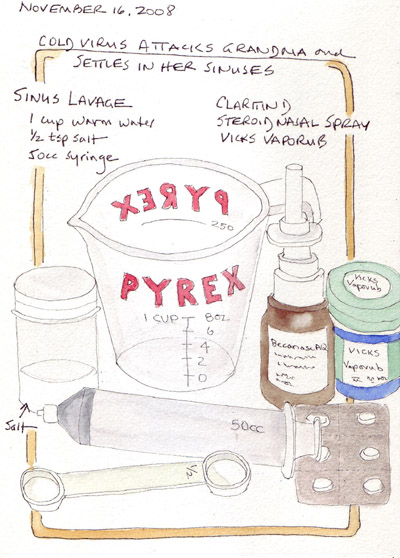 NOVEMBER 16, 2008
COLD VIRUS ATTACKS GRANDMA and
SETTLES IN HER SINUSES
SINUS LAVAGE
1 cup warm water
1/2 tsp salt
50cc syringe
CLARITIN D
STEROID NASAL SPRAY
VICKS VAPORUB
PYREX
250
PYREX
1 CUP 8OZ
6
4
2
0
VICKS
Vaporub
Beconase AQ
VICKS
Vaporub
Salt
50cc
1/2